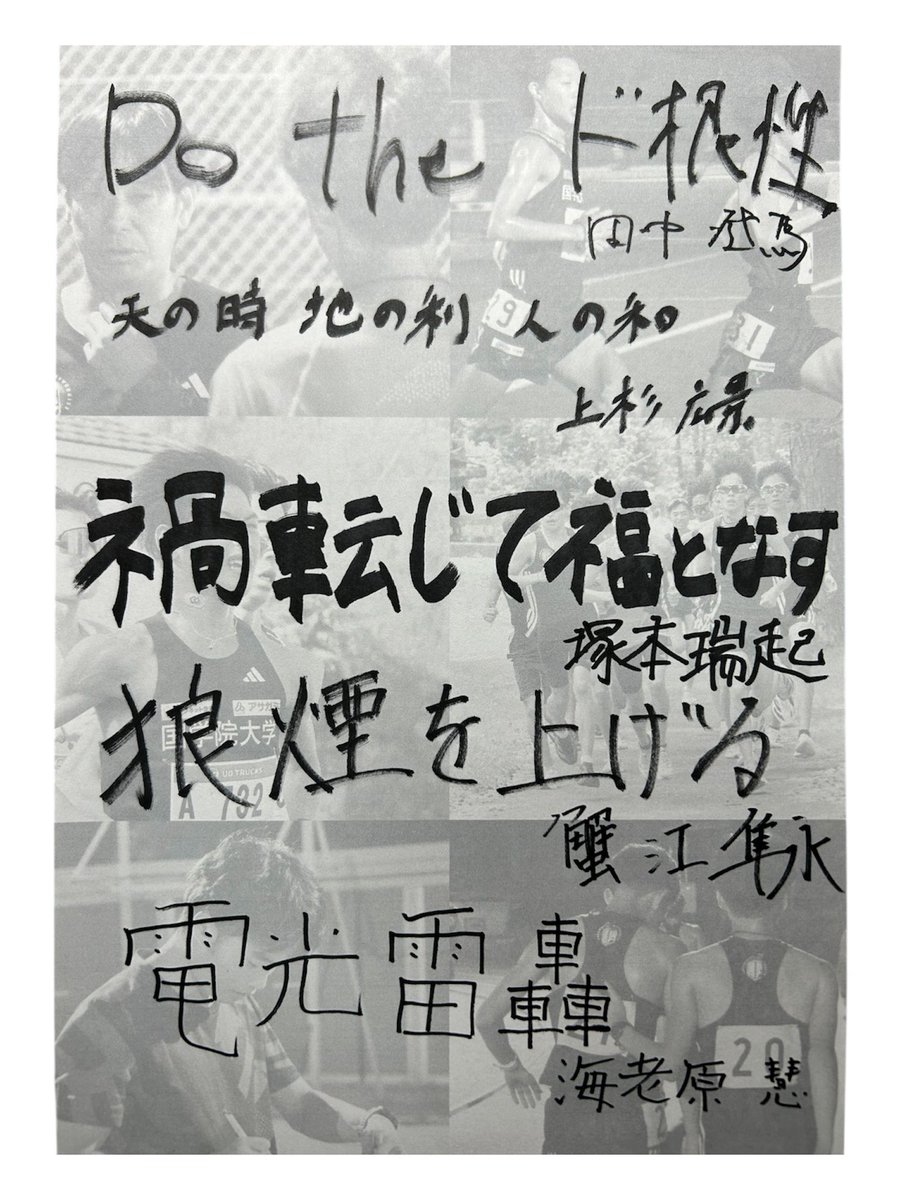 Do the ド根性
田中 登馬
天の時 地の利 人の和
29
31
上杉 広景
禍転じて福となす
塚本瑞起
アサガミ
国学院大学
UD TRUCKS
A 732
狼煙を上げる
蟹江 隼永
電光雷轟
20
海老原 慧